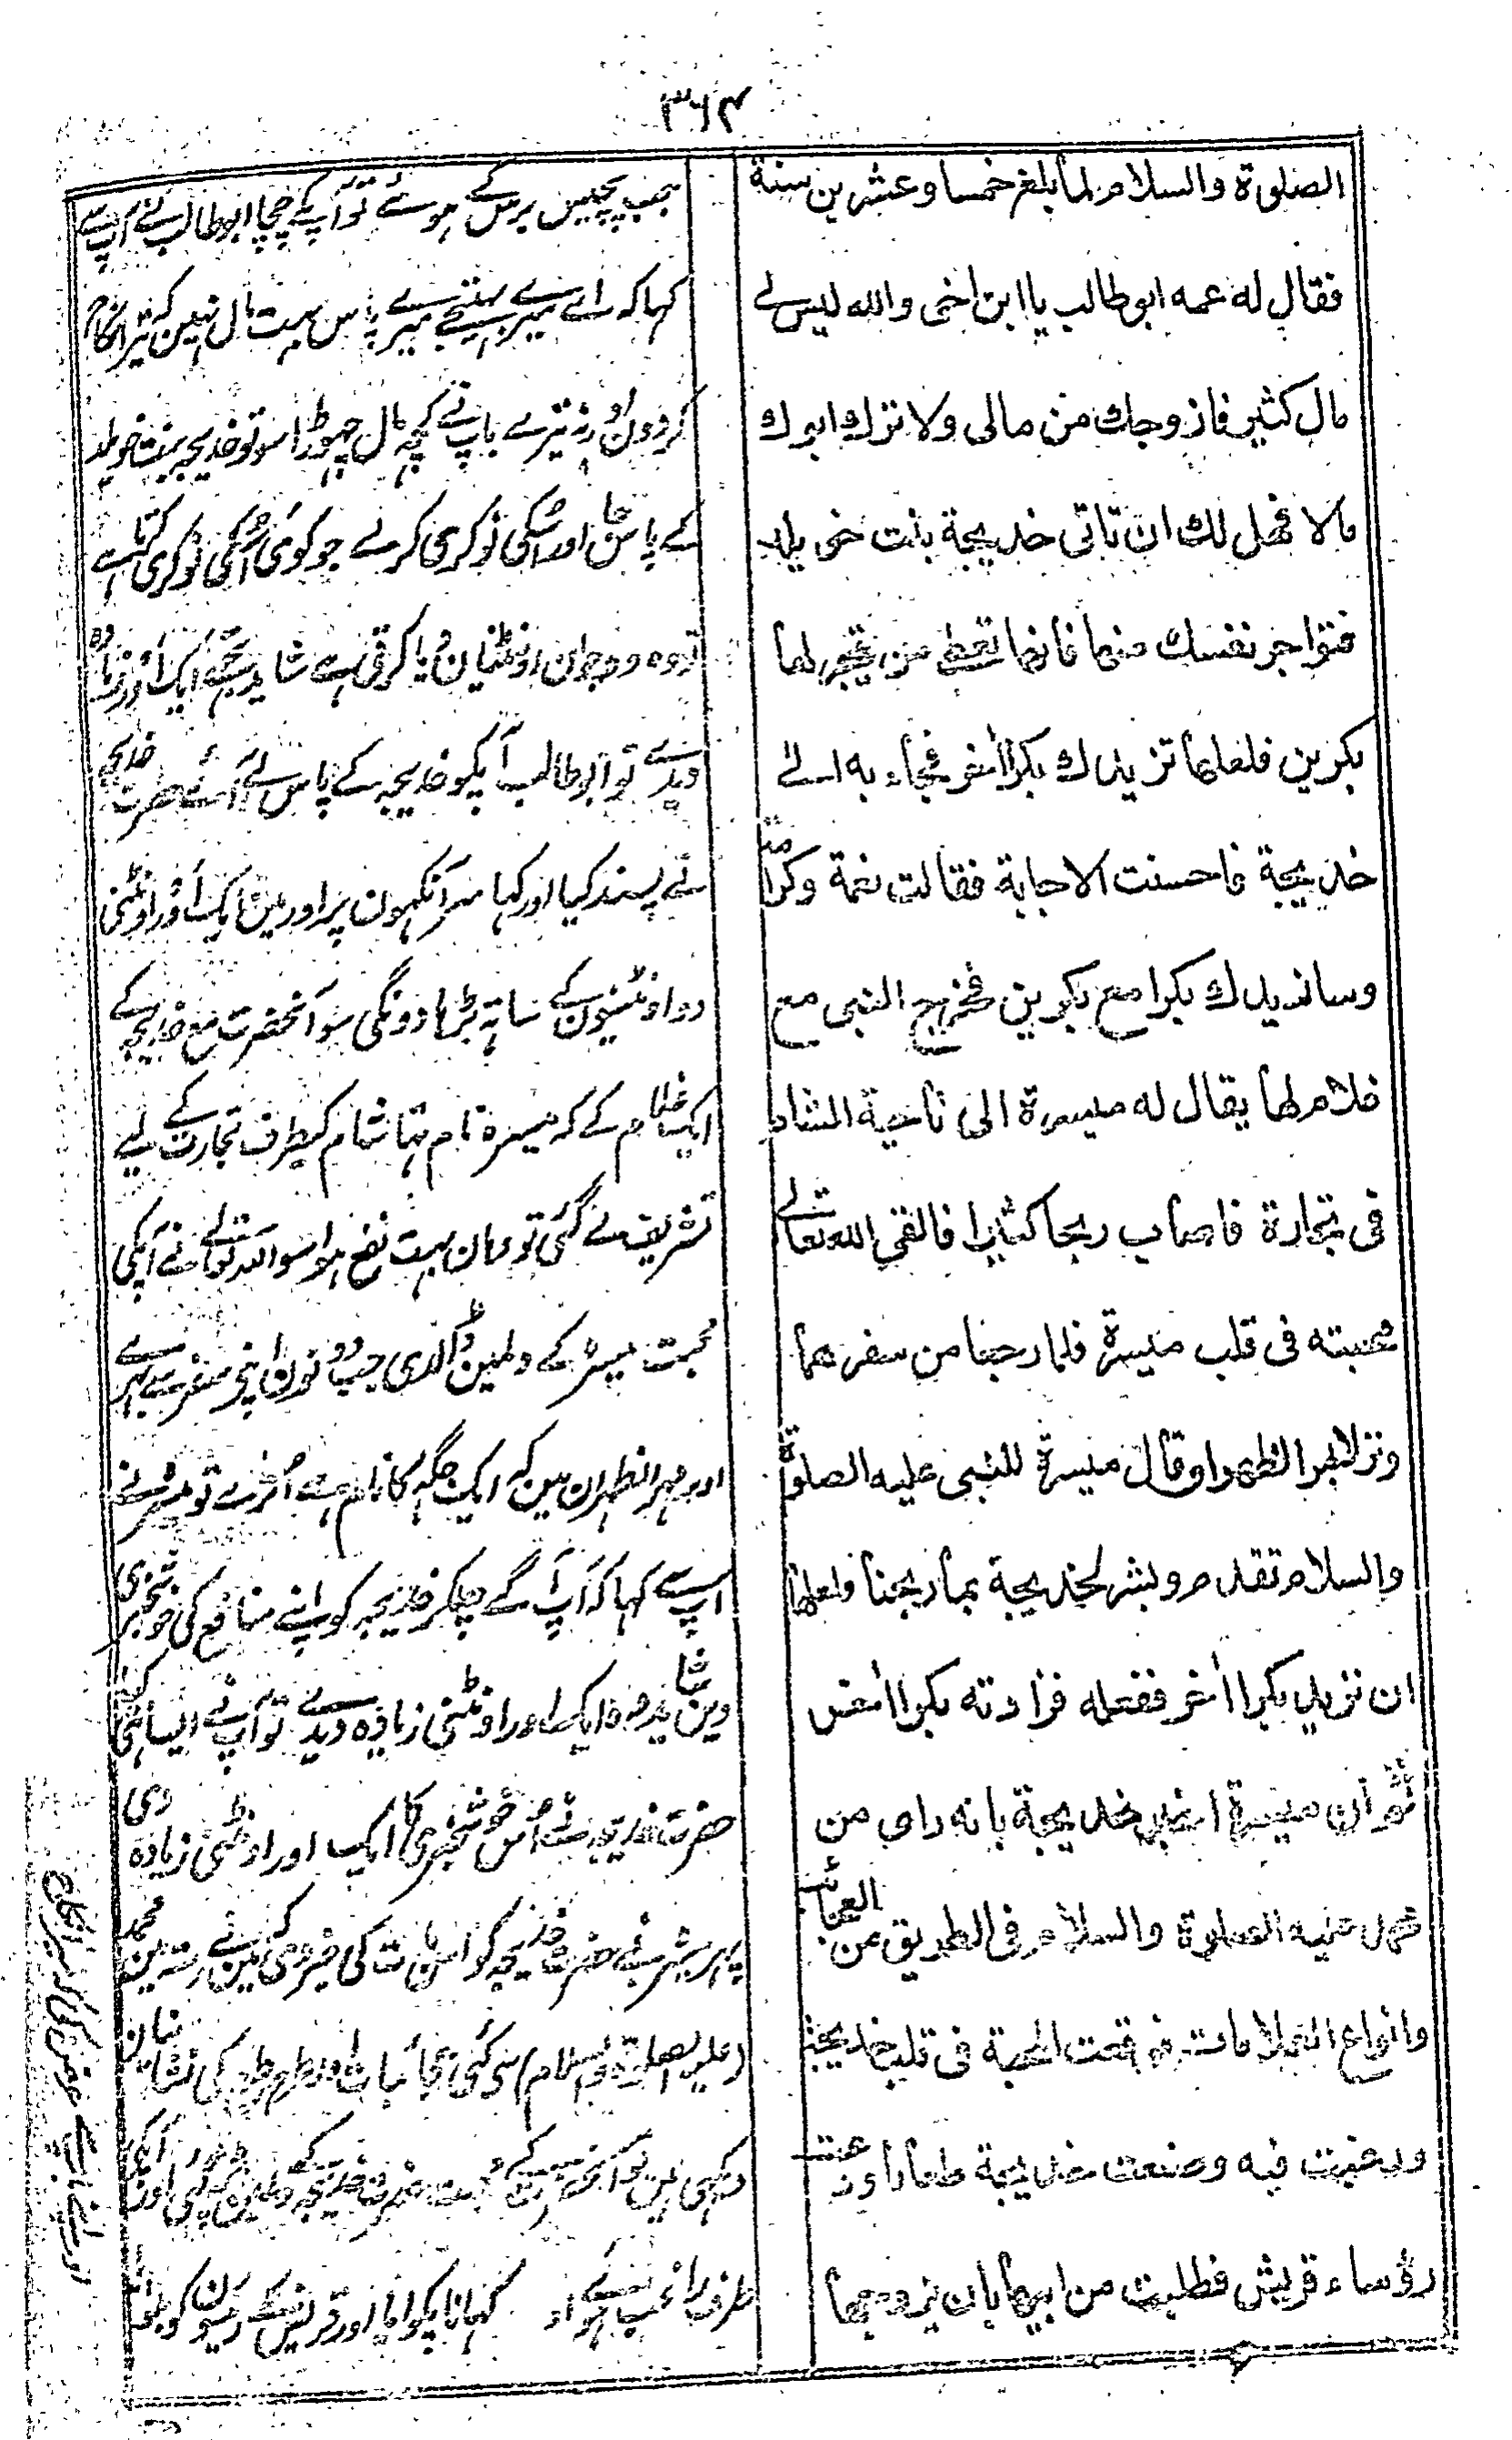 ٣٦٤
الصلوة والسلام لما بلغ خمسا وعشرين سنة
فقال له عمه ابوطالب يا ابن اخى والله ليس لے
مال كثير فازوجك من مالى ولا ترك ابوك
مالا فهل لك ان تاتى خديجة بنت خويلد
فتواجر نفسك منها فانها تعطى من يتجر لها
بكرين فلعلها تزيدك بكرا أخر فجاء به الے
خديجة فاحسنت الاجابة فقالت نعمة وكرامة
وسازيدك بكرا مع بكرين فخرج النبى مع
غلام لها يقال له ميسرة الى ناحية الشام
فى تجارة فاصاب ربحا كثيرا فالقى الله تعالے
محبته فى قلب ميسرة فلما رجعا من سفرهما
ونزلا بمر الظهران قال ميسرة للنبى عليه الصلوة
والسلام تقدم وبشر لخديجة بما ربحنا فلعلها
ان تزيد بكرا أخر ففعله فزادته بكرا أخر
ثم ان ميسرة اخبر خديجة بانه راى من
محمد عليه الصلوة والسلام فى الطريق من العجائب
وانواع العلامات فوقعت المحبة فى قلب خديجة
ورغبت فيه وصنعت خديجة طعاما ودعت
رؤساء قريش فطلبت من ابيها بان يزوجها
جب پچیس برس کے ہوئے تو آپکے چچا ابوطالب نے آپ سے
کہا کہ اے میرے بہتیجے میرے پاس بہت مال نہین کہ تیرا نکاح
کردون اور نہ تیرے باپ نے کچھ مال چہوڑا سو تو خدیجہ بنت خویلد
کے پاس جا اور اسکی نوکری کرلے جو کوی اسکی نوکری کرتا ہے
تو وہ دو جوان اونٹنیان دیا کرتی ہے شاید تجھے ایک اور زیادہ
دیدے تو ابوطالب آپکو خدیجہ کے پاس لے آئے حضرت خدیجہ
نے پسند کیا اور کہا سر آنکہون پر اور مین ایک اور اونٹنی
دو اونٹنیون کے ساتہ بڑہا دونگی سو آنحضرت مع خدیجہ کے
ایک غلام کے کہ میسرہ نام تہا شام کیطرف تجارت کے لیے
تشریف لے گئی تو وہان بہت نفع ہوا سو اللہ تعالے نے آپکی
محبت میسرہ کے دلمین ڈالدی جب دونون اپنے سفر سے پہرے
اور مر الظہران مین کہ ایک جگہ کا نام ہے اترے تو میسرہ نے
آپ سے کہا کہ آپ آگے چلکر خدیجہ کو اپنے منافع کی خوشخبری
دین شاید وہ ایک اور اونٹنی زیادہ دیدے تو آپ نے ایسا ہی کیا
حضرت خدیجہ نے اس خوشخبری کا ایک اور اونٹنی زیادہ دی
پہر میسرہ نے حضرت خدیجہ کو اس بات کی خبر دی کہ مین نے رستہ مین محمد
علیہ الصلوۃ والسلام سی کئی عجائبات اور طرح طرح کی نشانیان
دیکہی ہین تو آنحضرت کے محبت حضرت خدیجہ کے دلمین پڑگئی اور آپکی
طرف راغب ہو کہانا پکوایا اور قریش کے رئیسون کو بلوایا
اور اپنے باپ سے عرض کی کہ میرا نکاح